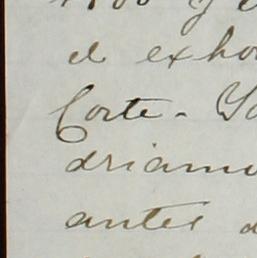 el exho
Corte. Yo
driamo
antes d